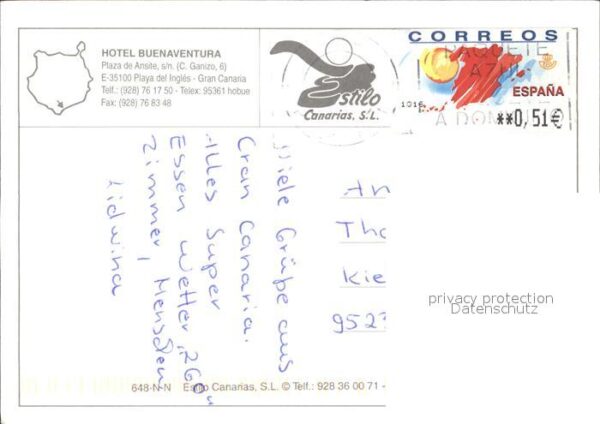 HOTEL BUENAVENTURA
Plaza de Ansite, s/n. (C. Ganizo, 6)
E-35100 Playa del Inglés - Gran Canaria
Telf.: (928) 76 17 50 - Telex: 95361 hobue
Fax: (928) 76 83 48
Estilo
Canarias, S.L.
CORREOS
PAQUETE
AZUL
ESPAÑA
1016
A DOM
**0,51€
Viele Grüße aus
Gran Canaria.
Alles Super
Essen Wetter "26°"
Zimmer, Menschen
Lidwina
An
Tho
Kie
952
privacy protection
Datenschutz
648-N-N Estilo Canarias, S.L. © Telf.: 928 36 00 71 -